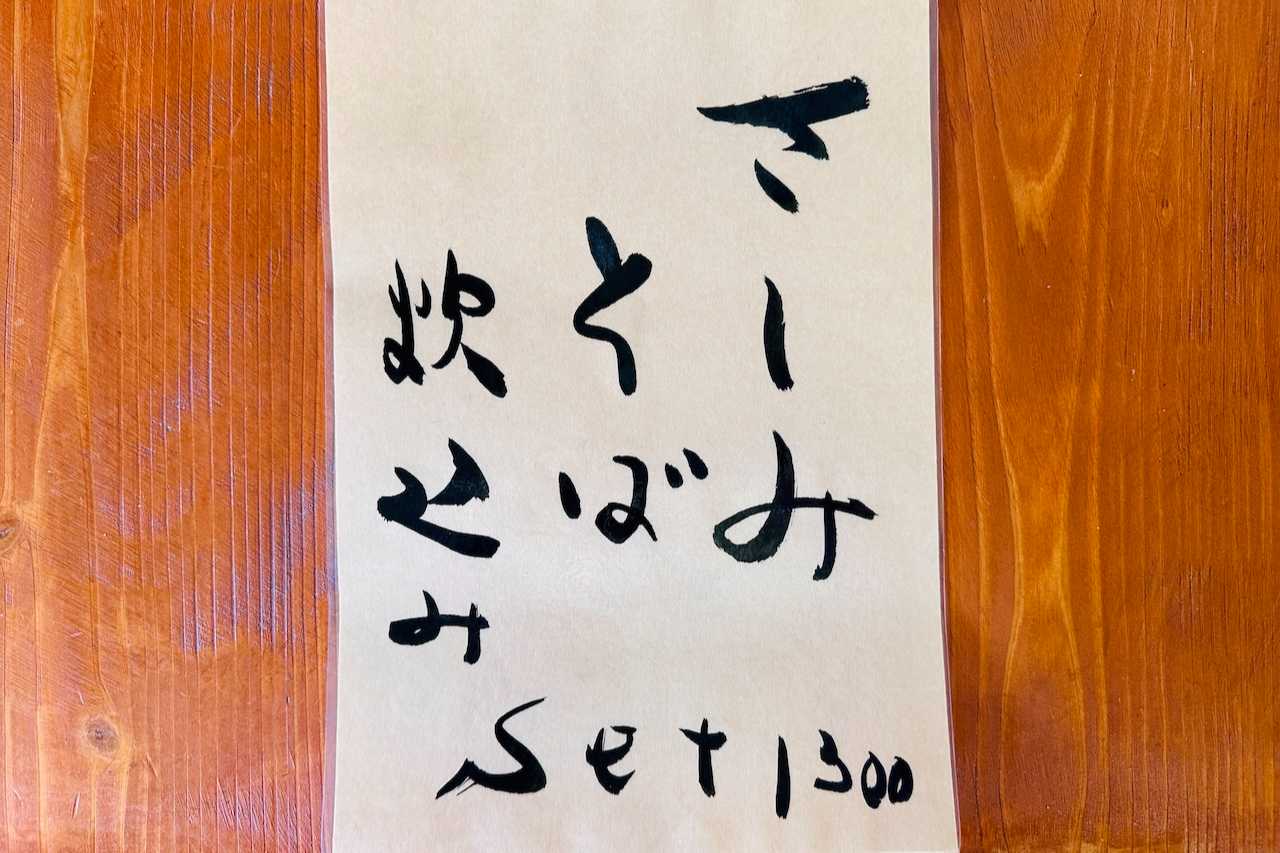 さしみ
そば
炊込み
Set 1300